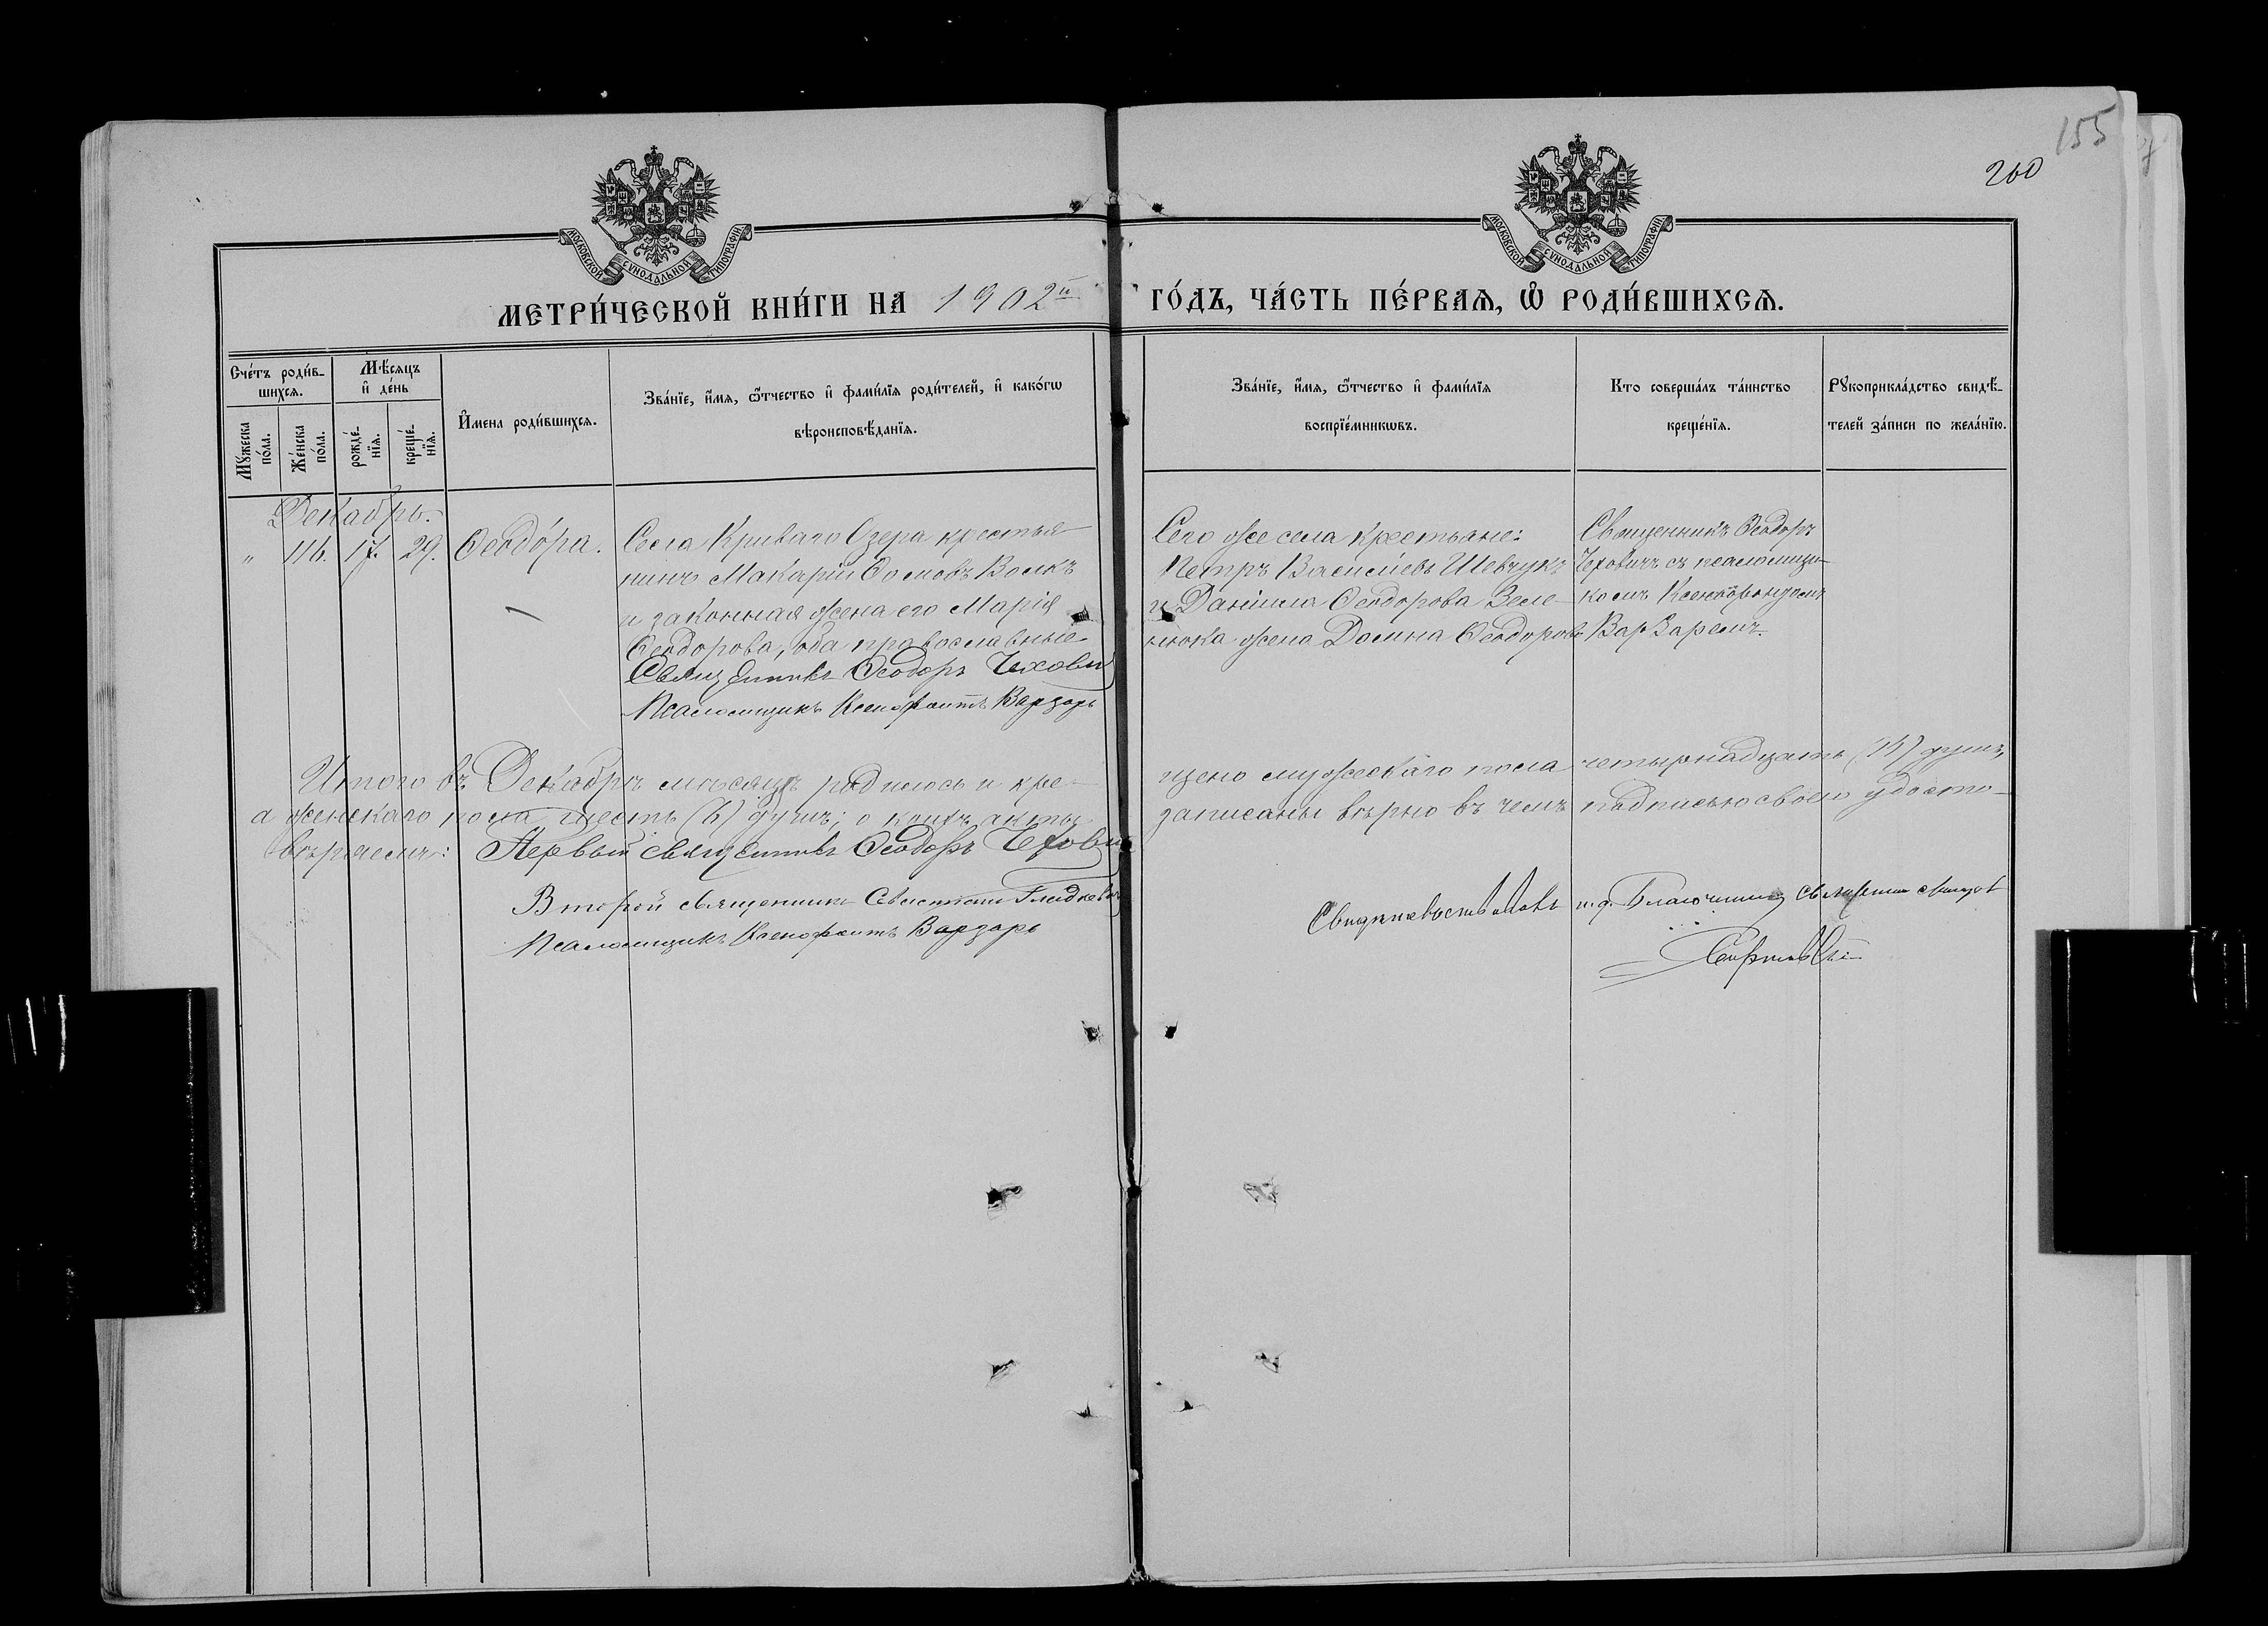 155
260
МОСКОВСКОЙ СѴНОДАЛЬНОЙ ТИПОГРАФІИ
МОСКОВСКОЙ СѴНОДАЛЬНОЙ ТИПОГРАФІИ
МЕТРИ́ЧЕСКОЙ КНИ́ГИ НА 1902й ГО́ДЪ, ЧА́СТЬ ПЕ́РВАѦ, Ѡ҆ РОДИ́ВШИХСѦ.
Сче́тъ роди́в-
шихсѧ.
Мꙋ́жеска
по́ла.
Же́нска
по́ла.
Мѣ́сѧцъ
и҆ де́нь
рожде́-
нїѧ.
креще́-
нїѧ.
И҆мена роди́вшихсѧ.
Зва́нїе, и҆́мѧ, ѻ҆́тчество и҆ фами́лїѧ роди́телей, и҆ како́гѡ
вѣроисповѣ́данїѧ.
Зва́нїе, и҆́мѧ, ѻ҆́тчество и҆ фами́лїѧ
воспрїе́мникѡвъ.
Кто соверша́лъ та́инство
креще́нїѧ.
Рꙋкоприкла́дство свидѣ́-
телей за́писи по жела́нїю.
Декабрь.
" 116. 17. 29. Ѳеодо́ра.
Села Криваго Озера крестья-
нинъ Макарій Ѳомовъ Волкъ
и законная жена его Марія
Ѳеодорова, оба православные
Священникъ Ѳеодоръ Чехович
Псаломщикъ Ксенофонтъ Варзарь
Сего же села крестьяне:
Петръ Васильевъ Шевчукъ
и Даніила Ѳеодорова Зеле-
нюка жена Домна Ѳеодорова
Священникъ Ѳеодоръ
Чеховичъ съ псаломщи-
комъ Ксенофонтомъ
Варзаремъ.
Итого въ Декабрѣ мѣсяцѣ родилось и кре-
щено мужескаго пола четырнадцать (14) душъ,
а женскаго пола шесть (6) душъ; о коихъ акты
записаны вѣрно въ чемъ подписью своею удосто-
вѣряемъ: Первый священникъ Ѳеодоръ Чехович
Второй священникъ
Псаломщикъ Ксенофонтъ Варзарь
Свидѣтельствовалъ и. д. Благочиннаго священникъ